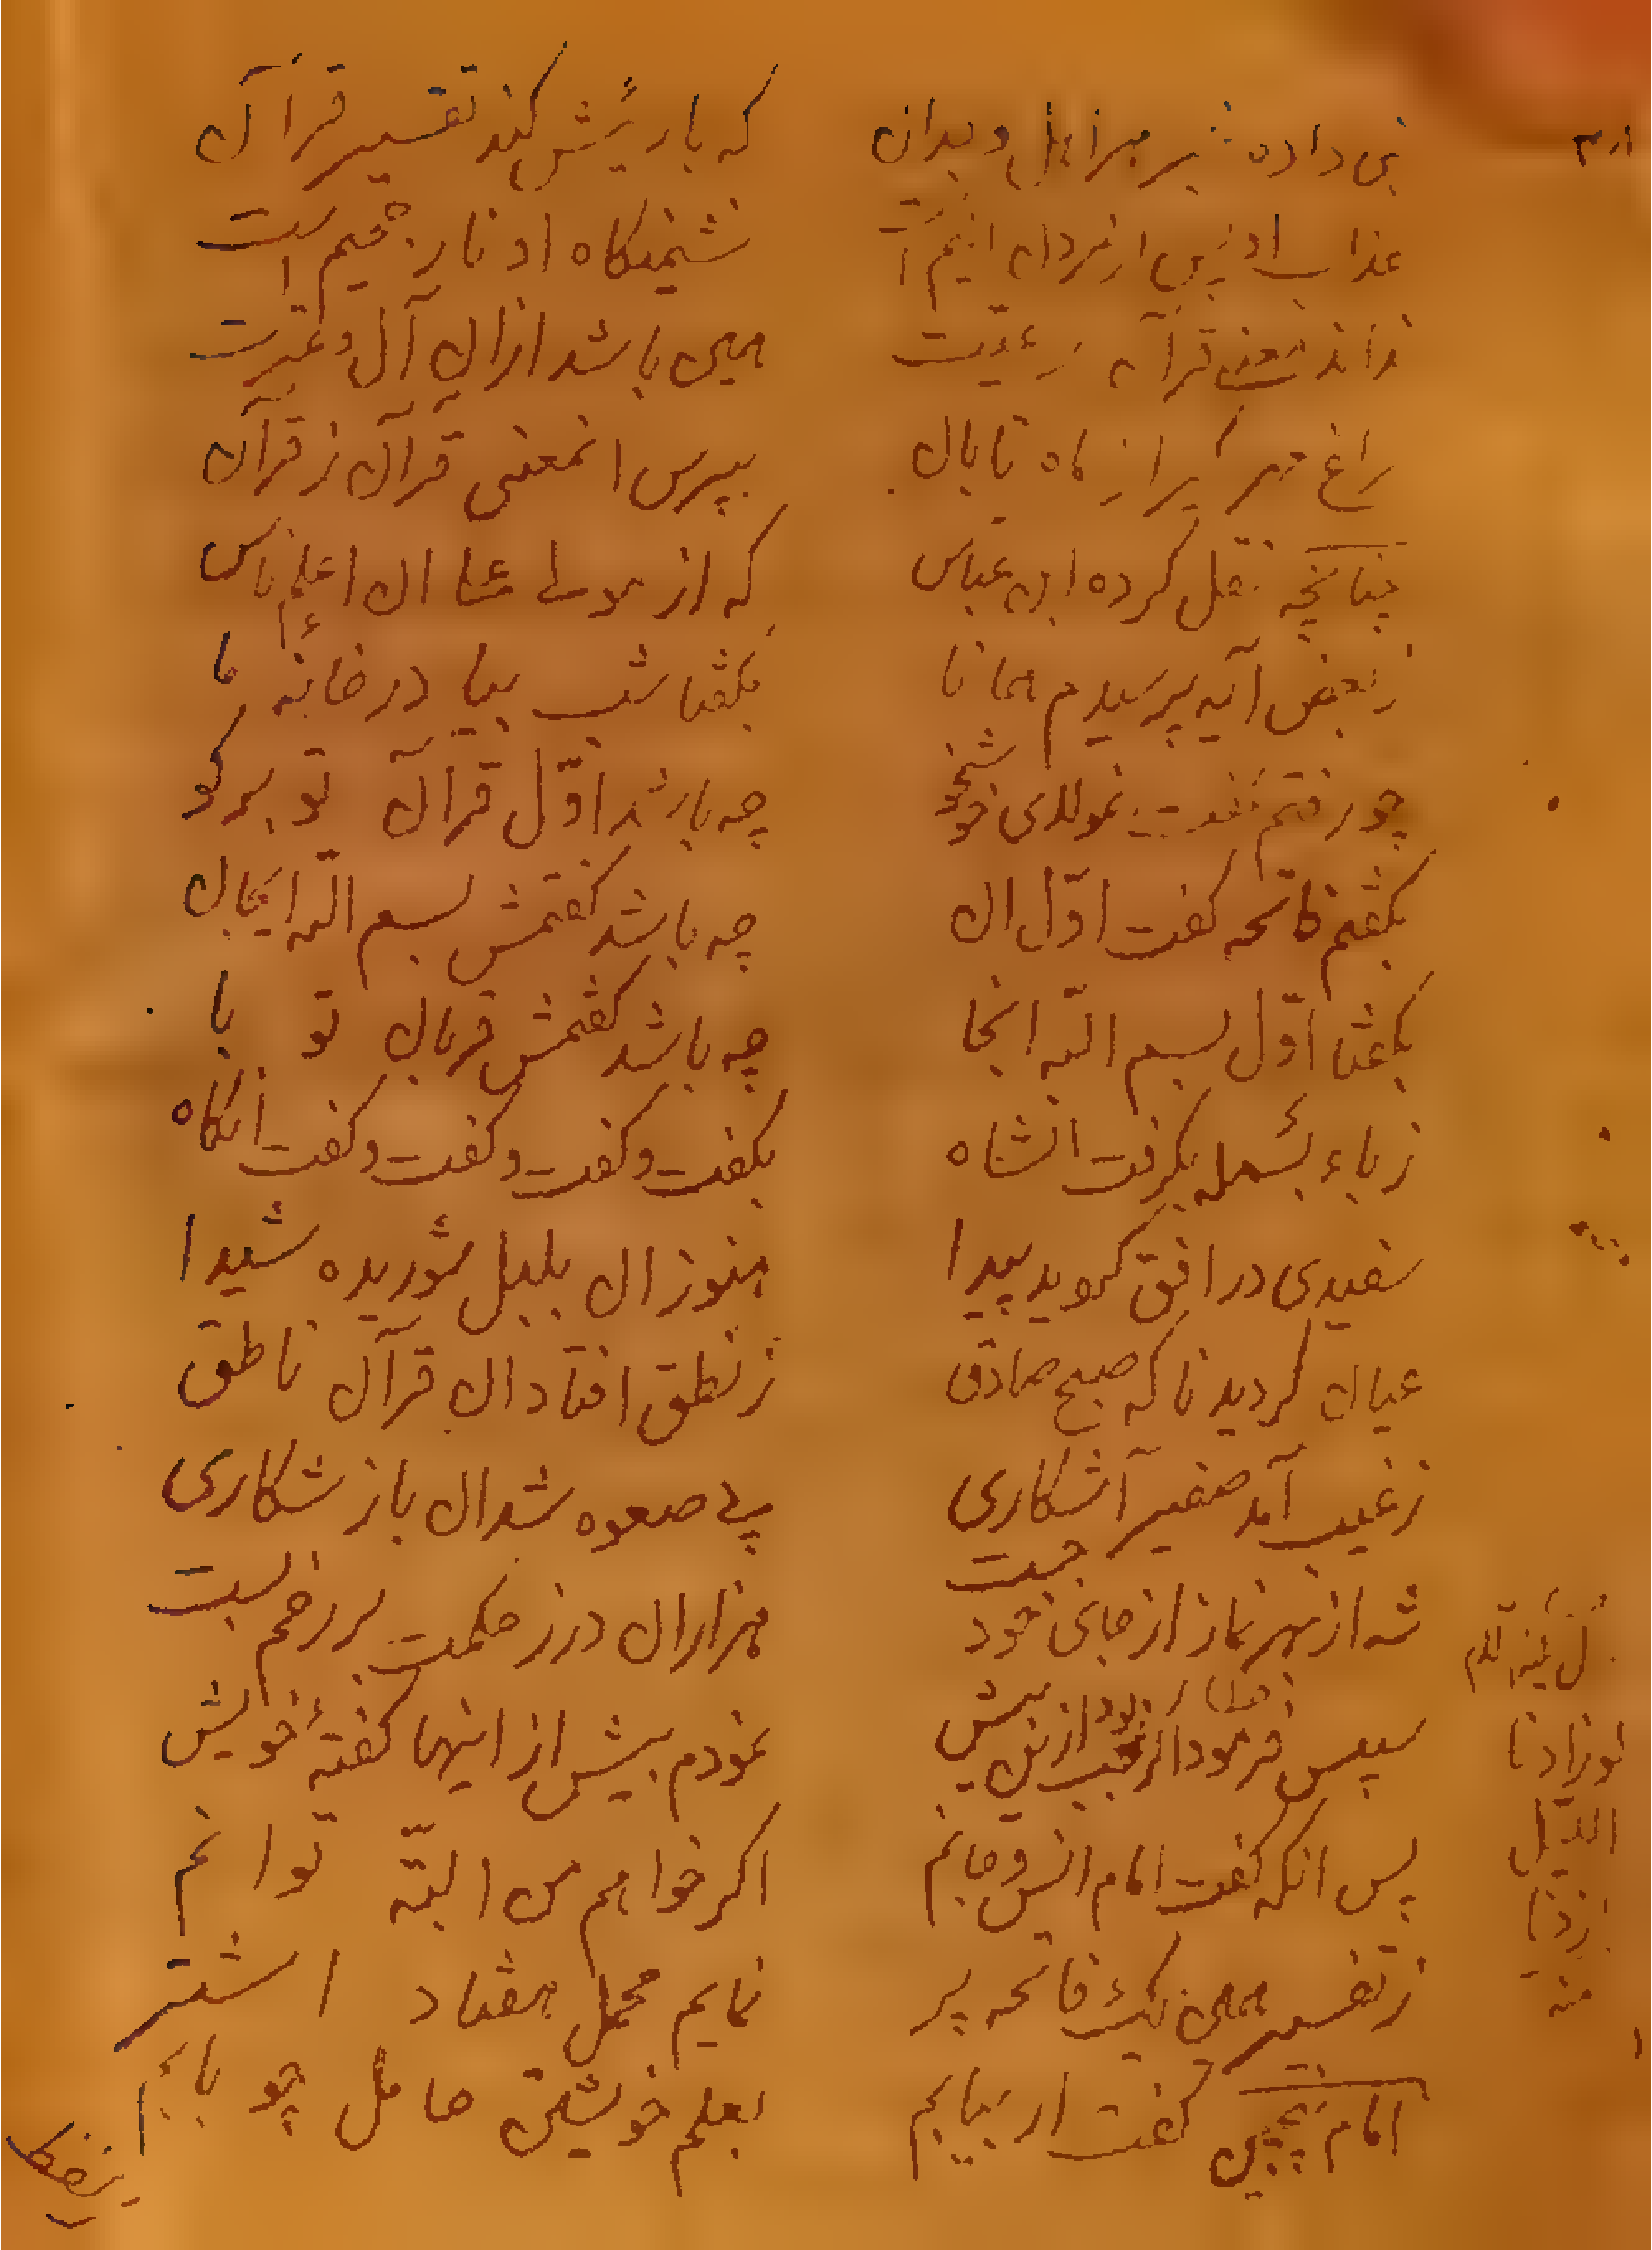 نبی داده خبر میر اهل و بدان
که بار یش کند تفسیر قرآن
عذاب او پس از مردن الیم است
نشیمنگاه او نار جحیم است
نداند معنی قرآن رعیت
همین باشد از ان آل و عترت
سراغ مهر گیر از ماه تابان
بپرس انمعنی قرآن ز قرآن
چنانچه نقل کرده ابن عباس
که از مولی علی ان اعلم ناس
ز بعض آیه پرسیدم همانا
بگفتا شب بیا در خانه ما
چو رفتم گفت مولای خوشخو
چه باشد اوّل قرآن تو برگو
بگفتم فاتحه گفت اوّل ان
چه باشد گفتمش بسم اللّه ایجان
بگفتا اوّل بسم اللّه انجا
چه باشد گفتمش قربان تو با
ز باء بسمله بگرفت انشاه
بگفت و گفت و گفت و گفت انگاه
سفیدی در افق گردید پیدا
هنوز ان بلبل شوریده شیدا
عیان گردید ناگه صبح صادق
ز نطق افتاد ان قرآن ناطق
ز غیب آمد صفیر آشکاری
پی صعوه شد ان باز شکاری
شه از بهر نماز از جای خود جست
هزاران درز حکمت بر رخم بست
سپس فرمود ازین بیش
نمودم بیش از اینها گفتهٔ خویش
پس انکه گفت امام انس و جانم
اگر خواهم من البتّه توانم
ز تفسیر همین یک فاتحه پر
نمایم محمل هفتاد اشتر
امام پنجمین گفت ار بیابم
بعلم خویشتن حامل چو بابم